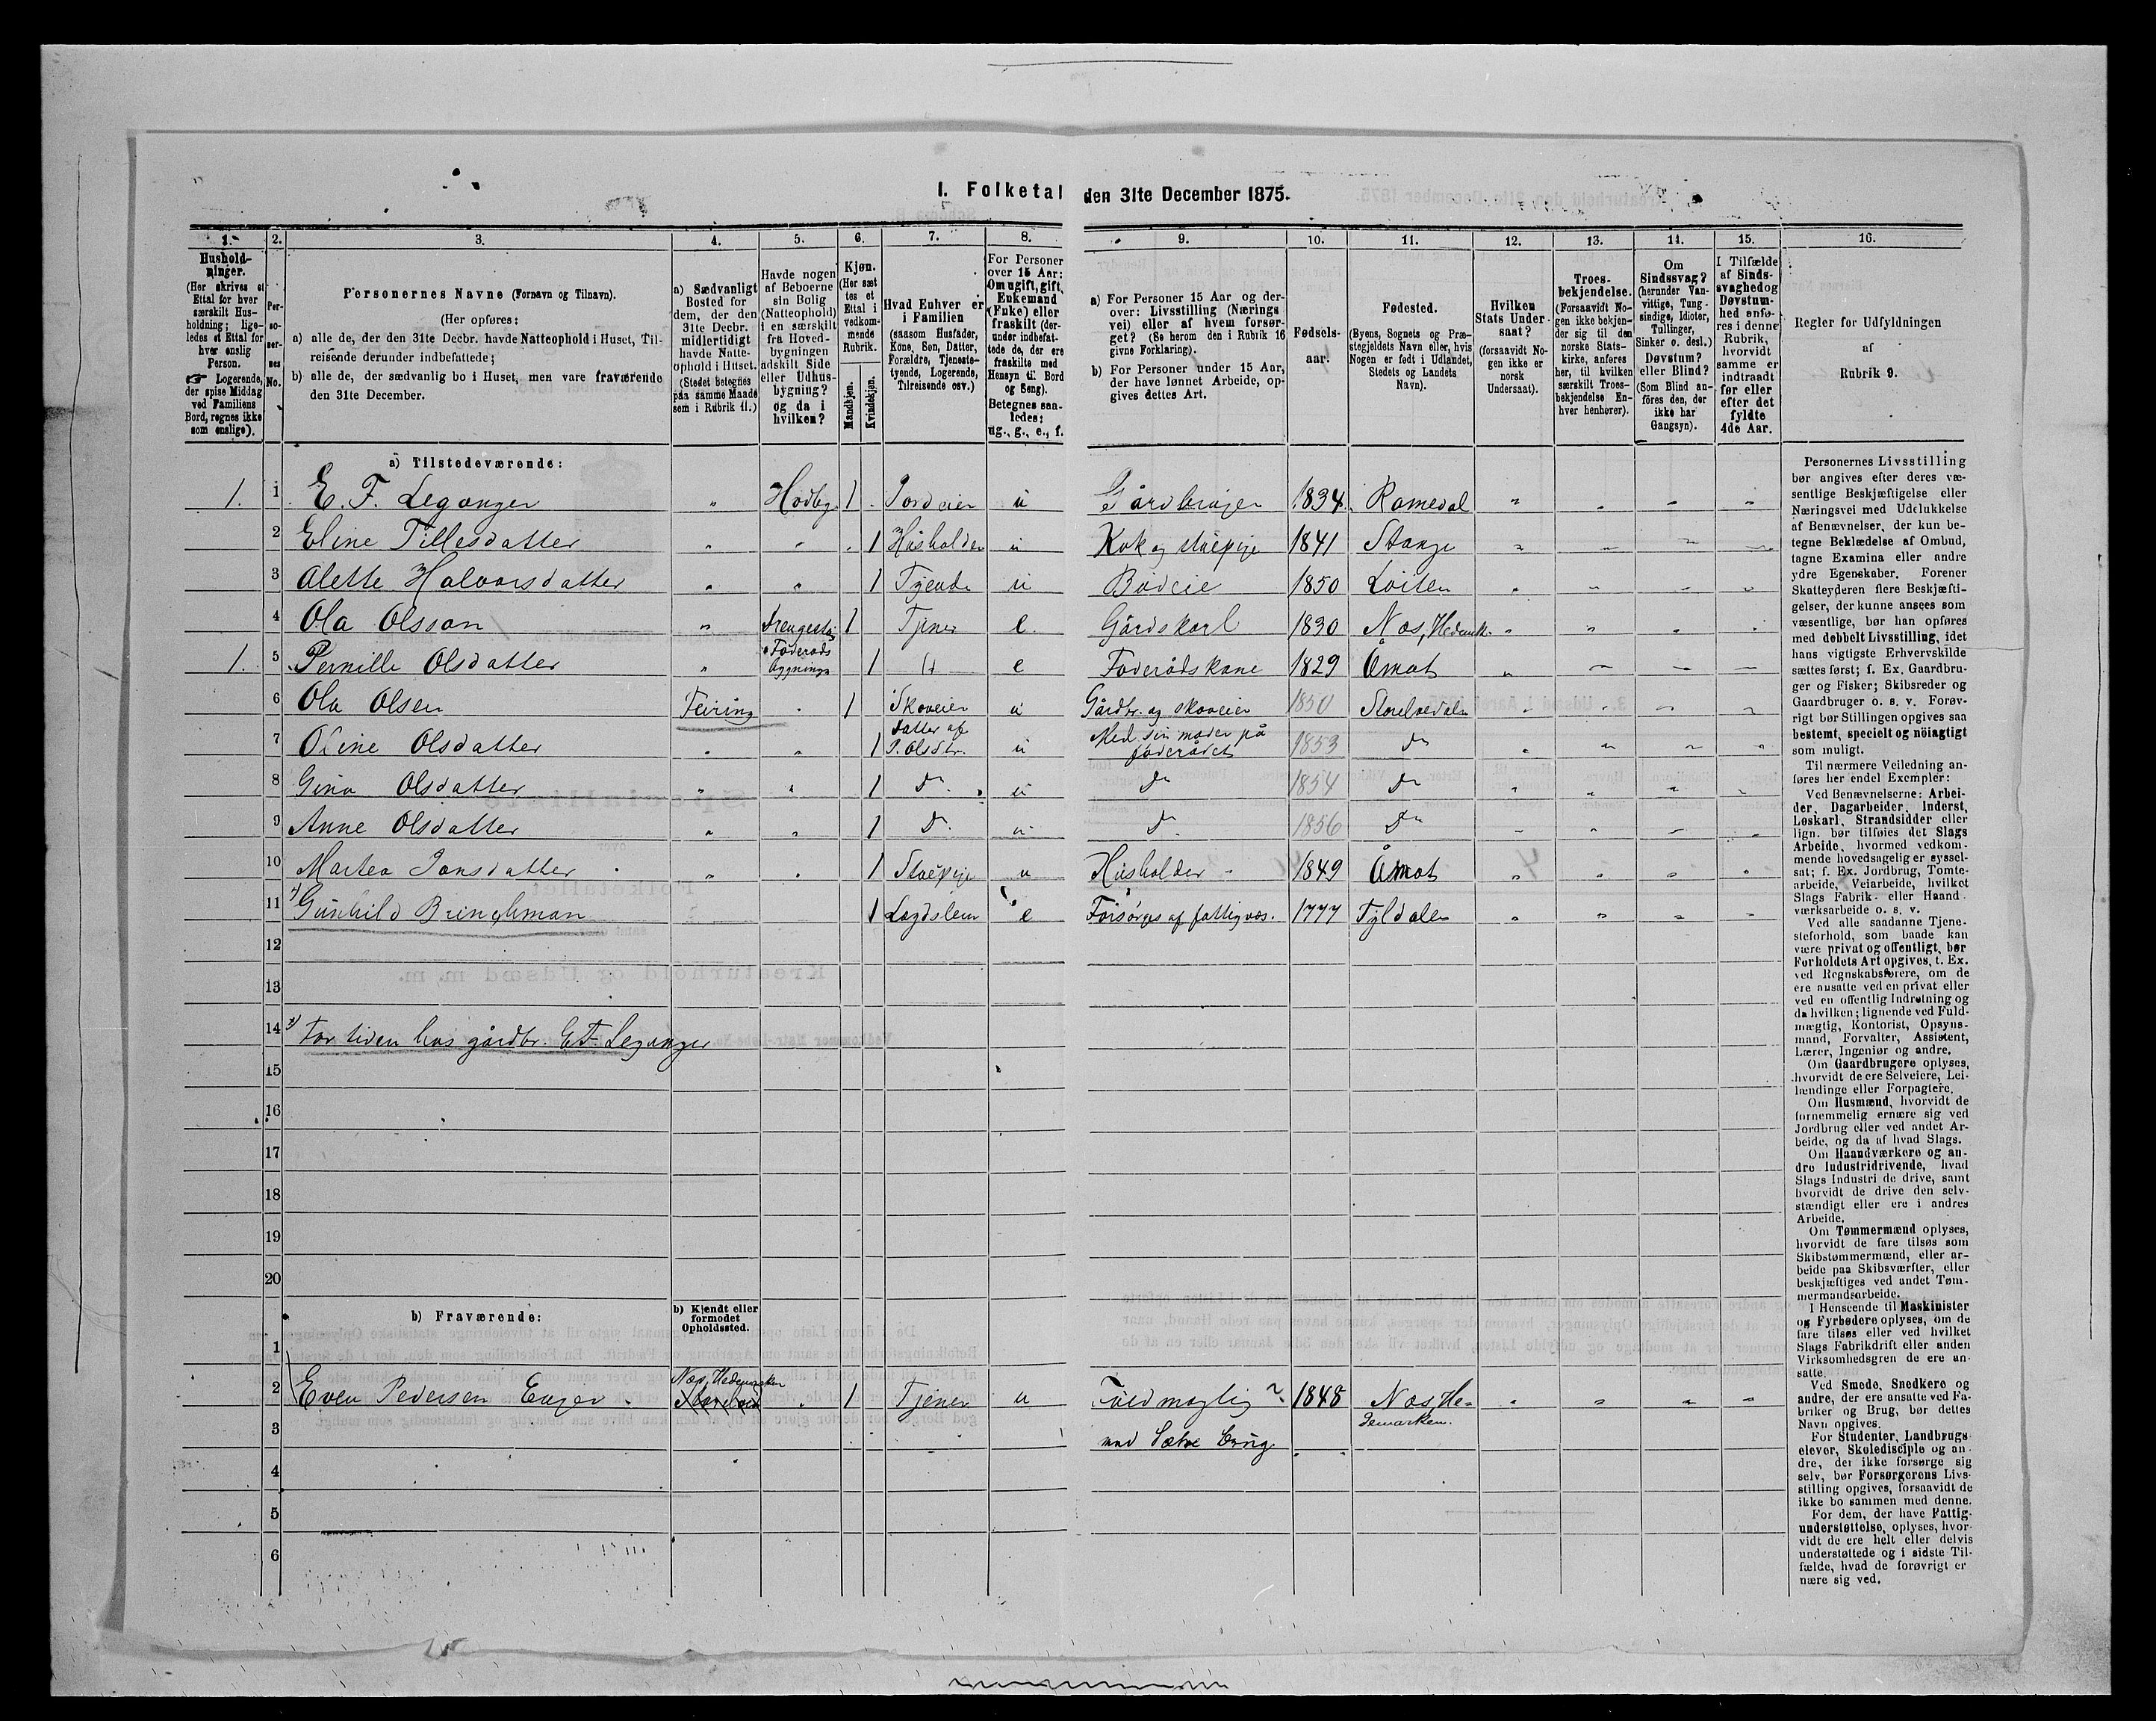 I. Folketal den 31te December 1875.
1. 2. 3. 4. 5. 6. 7. 8. 9. 10. 11. 12. 13. 14. 15. 16.
Hushold-
ninger.
(Her skrives et
Ettal for hver
særskilt Hus-
holdning; lige-
ledes et Ettal for
hver enslig
Person.
☞ Logerende,
der spise Middag
ved Familiens
Bord, regnes ikke
som enslige).
Per-
so-
ner-
nes
No.
Personernes Navne (Fornavn og Tilnavn).
(Her opføres:
a) alle de, der den 31te Decbr. havde Natteophold i Huset, Til-
reisende derunder indbefattede;
b) alle de, der sædvanlig bo i Huset, men vare fraværende
den 31te December.
a) Sædvanligt
Bosted for
dem, der den
31te Decbr.
midlertidigt
havde Natte-
ophold i Huset.
(Stedet betegnes
paa samme Maade
som i Rubrik 11.)
Havde nogen
af Beboerne
sin Bolig
(Natteophold)
i en særskilt
fra Hoved-
bygningen
adskilt Side
eller Udhus-
bygning?
og da i
hvilken?
Kjøn.
(Her sæt
tes et
Ettal i
vedkom-
mende
Rubrik.
Mandkjøn.
Kvindekjøn.
Hvad Enhver er
i Familien
(saasom Husfader,
Kone, Søn, Datter,
Forældre, Tjeneste-
tyende, Logerende,
Tilreisende osv.)
For Personer
over 15 Aar:
Om ugift, gift,
Enkemand
(Enke) eller
fraskilt (der-
under indbefat-
tede de, der ere
fraskilte med
Hensyn til Bord
og Seng).
Betegnes saa-
ledes:
ug., g., e., f.
a) For Personer 15 Aar og der-
over: Livsstilling (Nærings
vei) eller af hvem forsør-
get? (Se herom den i Rubrik 16
givne Forklaring).
b) For Personer under 15 Aar,
der have lønnet Arbeide, op-
gives dettes Art.
Fødsels-
aar.
Fødested.
(Byens, Sognets og Præ-
stegjeldets Navn eller, hvis
Nogen er født i Udlandet,
Stedets og Landets
Navn).
Hvilken
Stats Under-
saat?
(forsaavidt No-
gen ikke er
norsk
Undersaat).
Troes-
bekjendelse.
(Forsaavidt No-
gen ikke bekjen-
der sig til den
norske Stats-
kirke, anføres
her, til hvilken
særskilt Troes-
bekjendelse En-
hver henhører).
Om
Sindssvag?
(herunder Van-
vittige, Tung-
sindige, Idioter,
Tullinger,
Sinker o. desl.)
Døvstum?
eller Blind?
(Som Blind an-
føres den, der
ikke har
Gangsyn).
I Tilfælde
af Sinds-
svaghed og
Døvstum-
hed anfø-
res i denne
Rubrik,
hvorvidt
samme er
indtraadt
før eller
efter det
fyldte
4de Aar.
Regler for Udfyldningen
af
Rubrik 9.
a) Tilstedeværende:
1. 1 E. F. Leganger " Hodbg. 1 Jordeier u Gårdbruger 1834 Romedal
2 Eline Tillesdatter " " 1 Husholder u Kok og stuepige 1841 Stange
3 Alette Halvorsdatter " " 1 Tyende u Budeie 1850 Løiten
4 Ola Olsson " Drengestu 1 Tjener e. Gårdskarl 1830 Nœs, Hedemk.
1. 5 Pernille Olsdatter " Føderåds bygning 1 e Føderådskone 1829 Åmot
6 Ola Olsen Feiring " 1 Skoveier u Gårdbr. og skoveier 1850 Storelvedalen
7 Oline Olsdatter " " 1 Datter af P. Olsdtr. u Med sin moder på føderådet 1853 Do
8 Gina Olsdatter " " 1 Do u Do 1854 Do
9 Anne Olsdatter " " 1 Do u Do 1856 Do
10 Martea Jonsdatter " " 1 Stuepige u Husholder 1849 Åmot
11 Gunhild Bringhman 1 Lægdslem e Forsørges af fattigvæs. 1777 Tyldalen
12
13
14 For tiden hos gårdbr. E F Leganger
15
16
17
18
19
20
b) Fraværende:
b) Kjendt eller
formodet
Opholdssted.
1
2 Even Pedersen Enger Næs, Hedemarken " 1 Tjener u Fuldmægtig 1848 Næs, He-
demarken.
3 ved Sætre brug.
4
5
6
Personernes Livsstilling
bør angives efter deres væ-
sentlige Beskjæftigelse eller
Næringsvei med Udelukkelse
af Benævnelser, der kun be-
tegne Beklædelse af Ombud,
tagne Examina eller andre
ydre Egenskaber. Forener
Skatteyderen flere Beskjæfti-
gelser, der kunne ansees som
væsentlige, bør han opføres
med dobbelt Livsstilling, idet
hans vigtigste Erhvervskilde
sættes først; f. Ex. Gaardbru-
ger og Fisker; Skibsreder og
Gaardbruger o. s. v. Forøv-
rigt bør Stillingen opgives saa
bestemt, specielt og nöiagtigt
som muligt.
Til nærmere Veiledning an-
føres her endel Exempler:
Ved Benævnelserne: Arbei-
der, Dagarbeider, Inderst,
Løskarl, Strandsidder eller
lign. bør tilføies det Slags
Arbeide, hvormed vedkom-
mende hovedsagelig er syssel-
sat; f. Ex. Jordbrug, Tomte-
arbeide, Veiarbeide, hvilket
Slags Fabrik- eller Haand
værksarbeide o. s. v.
Ved alle saadanne Tjene-
steforhold, som baade kan
være privat og offentligt, bør
Forholdets Art opgives, t. Ex.
ved Regnskabsførere, om de
ere ansatte ved en privat eller
ved en offentlig Indretning og
da hvilken; lignende ved Fuld-
mægtig, Kontorist, Opsyns-
mand, Forvalter, Assistent,
Lærer, Ingeniør og andre.
Om Gaardbrugere oplyses,
hvorvidt de ere Selveiere, Lei-
lændinge eller Forpagtere.
Om Husmænd, hvorvidt de
fornemmelig ernære sig ved
Jordbrug eller ved andet Ar-
beide, og da af hvad Slags.
Om Haandværkere og an-
dre Industridrivende, hvad
Slags Industri de drive, samt
hvorvidt de drive den selv-
stændigt eller ere i andres
Arbeide.
Om Tømmermænd oplyses,
hvorvidt de fare tilsøs som
Skibstømmermænd, eller ar-
beide paa Skibsværfter, eller
beskjæftiges ved andet Tøm-
mermandsarbeide.
I Henseende til Maskinister
og Fyrbødere oplyses, om de
fare tilsøs eller ved hvilket
Slags Fabrikdrift eller anden
Virksomhedsgren de ere an-
satte.
Ved Smede, Snedkere og
andre, der ere ansatte ved Fa-
briker og Brug, bør dettes
Navn opgives.
For Studenter, Landbrugs
elever, Skoledisciple og an-
dre, der ikke forsørge sig
selv, bør Forsørgerens Livs-
stilling opgives, forsaavidt de
ikke bo sammen med denne.
For dem, der have Fattig-
understøttelse, oplyses, hvor-
vidt de ere helt eller delvis
understøttede og i sidste Til-
fælde, hvad de forøvrigt er
nære sig ved.